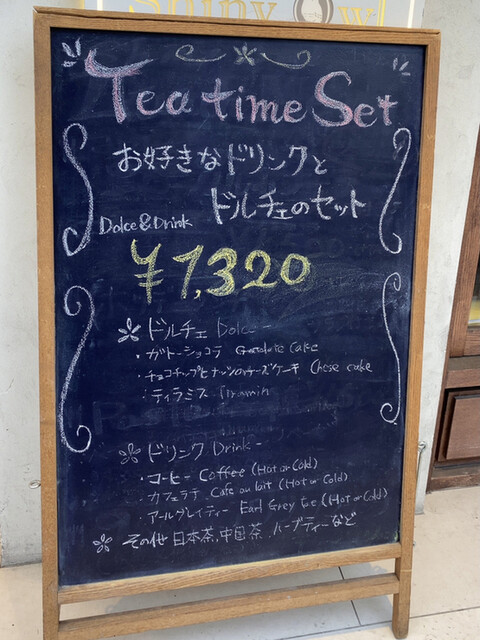 Shiny Owl
Tea time Set
お好きなドリンクと
ドルチェのセット
Dolce & Drink
¥1,320
ドルチェ Dolce -
・ガトーショコラ Chocolate Cake
・チョコチップとナッツのチーズケーキ Chese cake
・ティラミス Tiramin
ドリンク Drink -
・コーヒー Coffee (Hot or Cold)
・カフェラテ Cafe au lait (Hot or Cold)
・アールグレイティー Earl Grey tee (Hot or Cold)
その他 日本茶、中国茶、ハーブティーなど